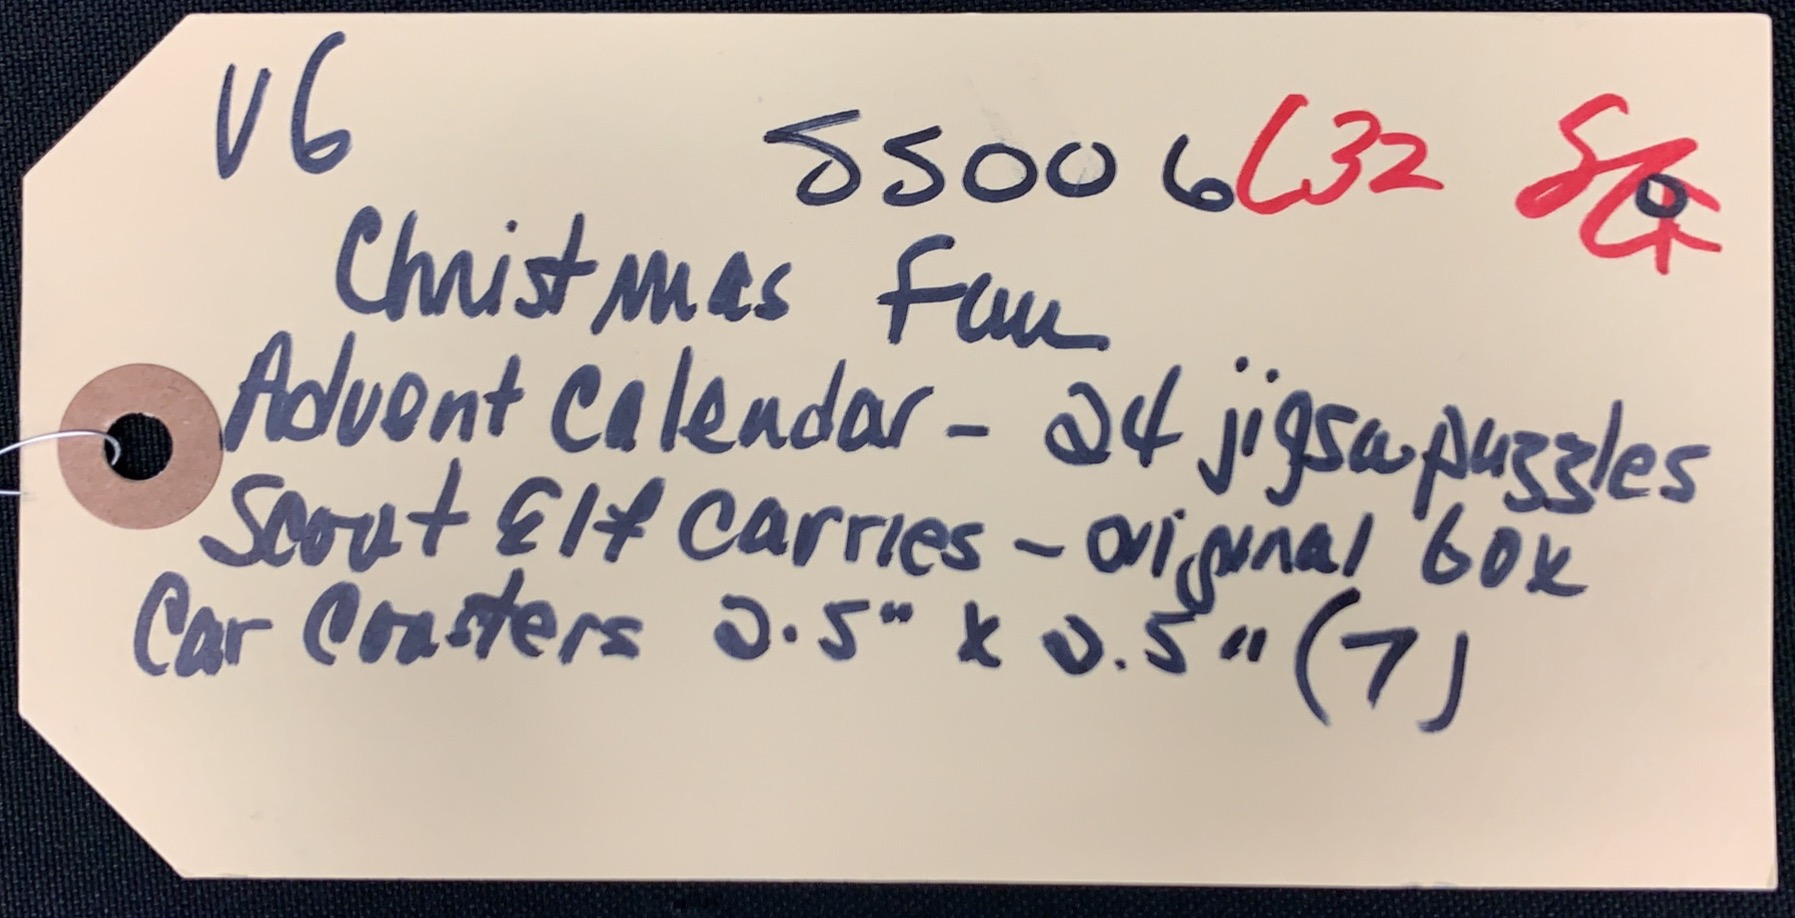 V6
55006 L32
Christmas Fun
Advent Calendar - 24 jigsaw puzzles
Scout Elf Carries - original box
Car Coasters 2.5" x 2.5" (7)